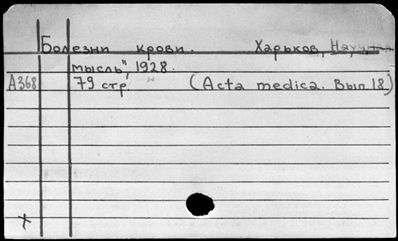 Болезни крови. Харьков, Научная
мысль", 1928.
А368 79 стр. (Acta medica. Вып. 18)